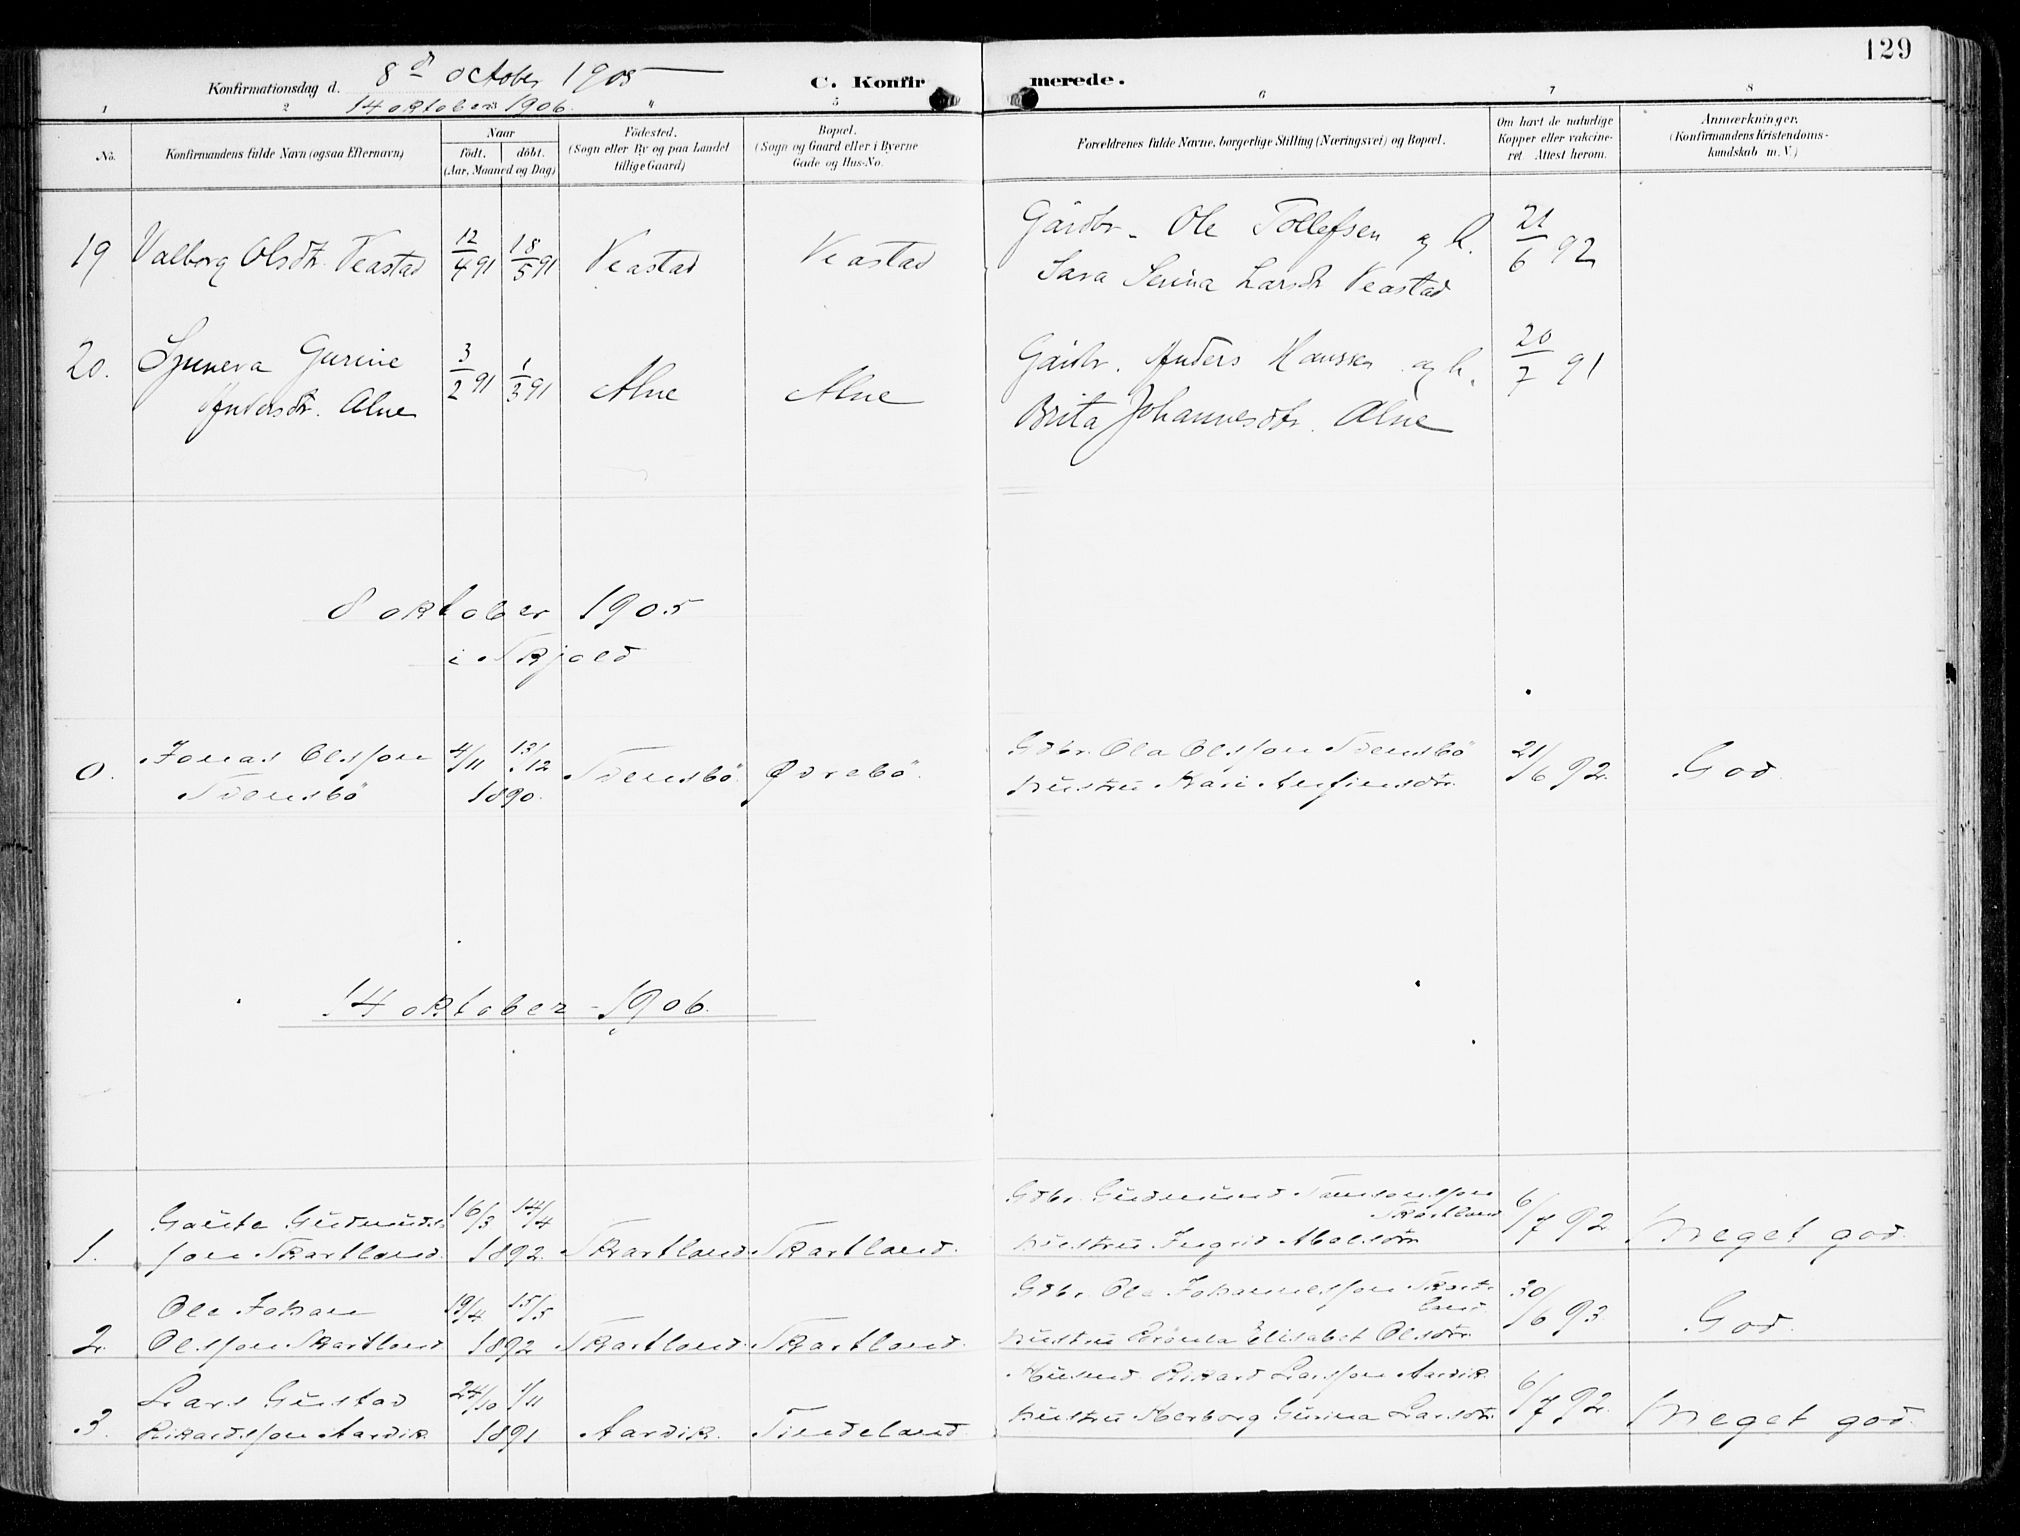 129
Konfirmationsdag d. 8d october 1905
14 oktober 1906.
C. Konfirmerede.
1 2 3 4 5 6 7 8
No.
Konfirmandens fulde Navn (ogsaa Efternavn)
Naar
født. døbt.
(Aar, Maaned og Dag)
Födested.
(Sogn eller By og paa Landet
tillige Gaard)
Bopæl.
(Sogn og Gaard eller i Byerne
Gade og Hus-No.
Forældrenes fulde Navne, borgerlige Stilling (Næringsvei) og Bopæl.
Om havt de naturlige
Kopper eller vakcine-
ret. Attest herom.
Anmærkninger.
(Konfirmandens Kristendoms-
kundskab m. V.)
19 Valborg Olsdtr. Veastad 12/4 91 18/5 91 Veastad Veastad Gårdbr. Ole Tollefsen og h. 21/6 92
Sara Serina Larsdtr Veastad
20. Synneva Gurine 3/2 91 1/3 91 Alne Alne Gårdbr. Anders Hansen og h. 20/7 91
Andersdtr. Alne Brita Johannesdtr. Alne
8 oktober 1905
i Skjold
0. Jonas Olsson 4/11 13/12 Ødrebö. Gdbr. Ola Olsson 21/6 92. God.
1890. hustru Kari Anfinsdtr.
14 oktober 1906.
1. Gaute Gudmunds- 16/3 14/4 Gdbr. Gudmund 6/7 92
son Skartland. 1892. Skartland. Skartland. Skartland
hustru Ingrid Abelsdtr Meget god.
2. Ole Johan 19/4 15/5 Gdbr. Ole Johannesson Skart- 30/6 93
land.
Olsson Skartland 1892 Skartland. Skartland. hustru Elisabet Olsdtr. God.
3. Lars Gustad 24/10 1/11 Husmd. Rikard Larsson Aardik. 6/7 92.
Rikardsson Aardik. 1891 Aardik. Tindeland. hustru Herborg Gurina Larsdtr. Meget god.